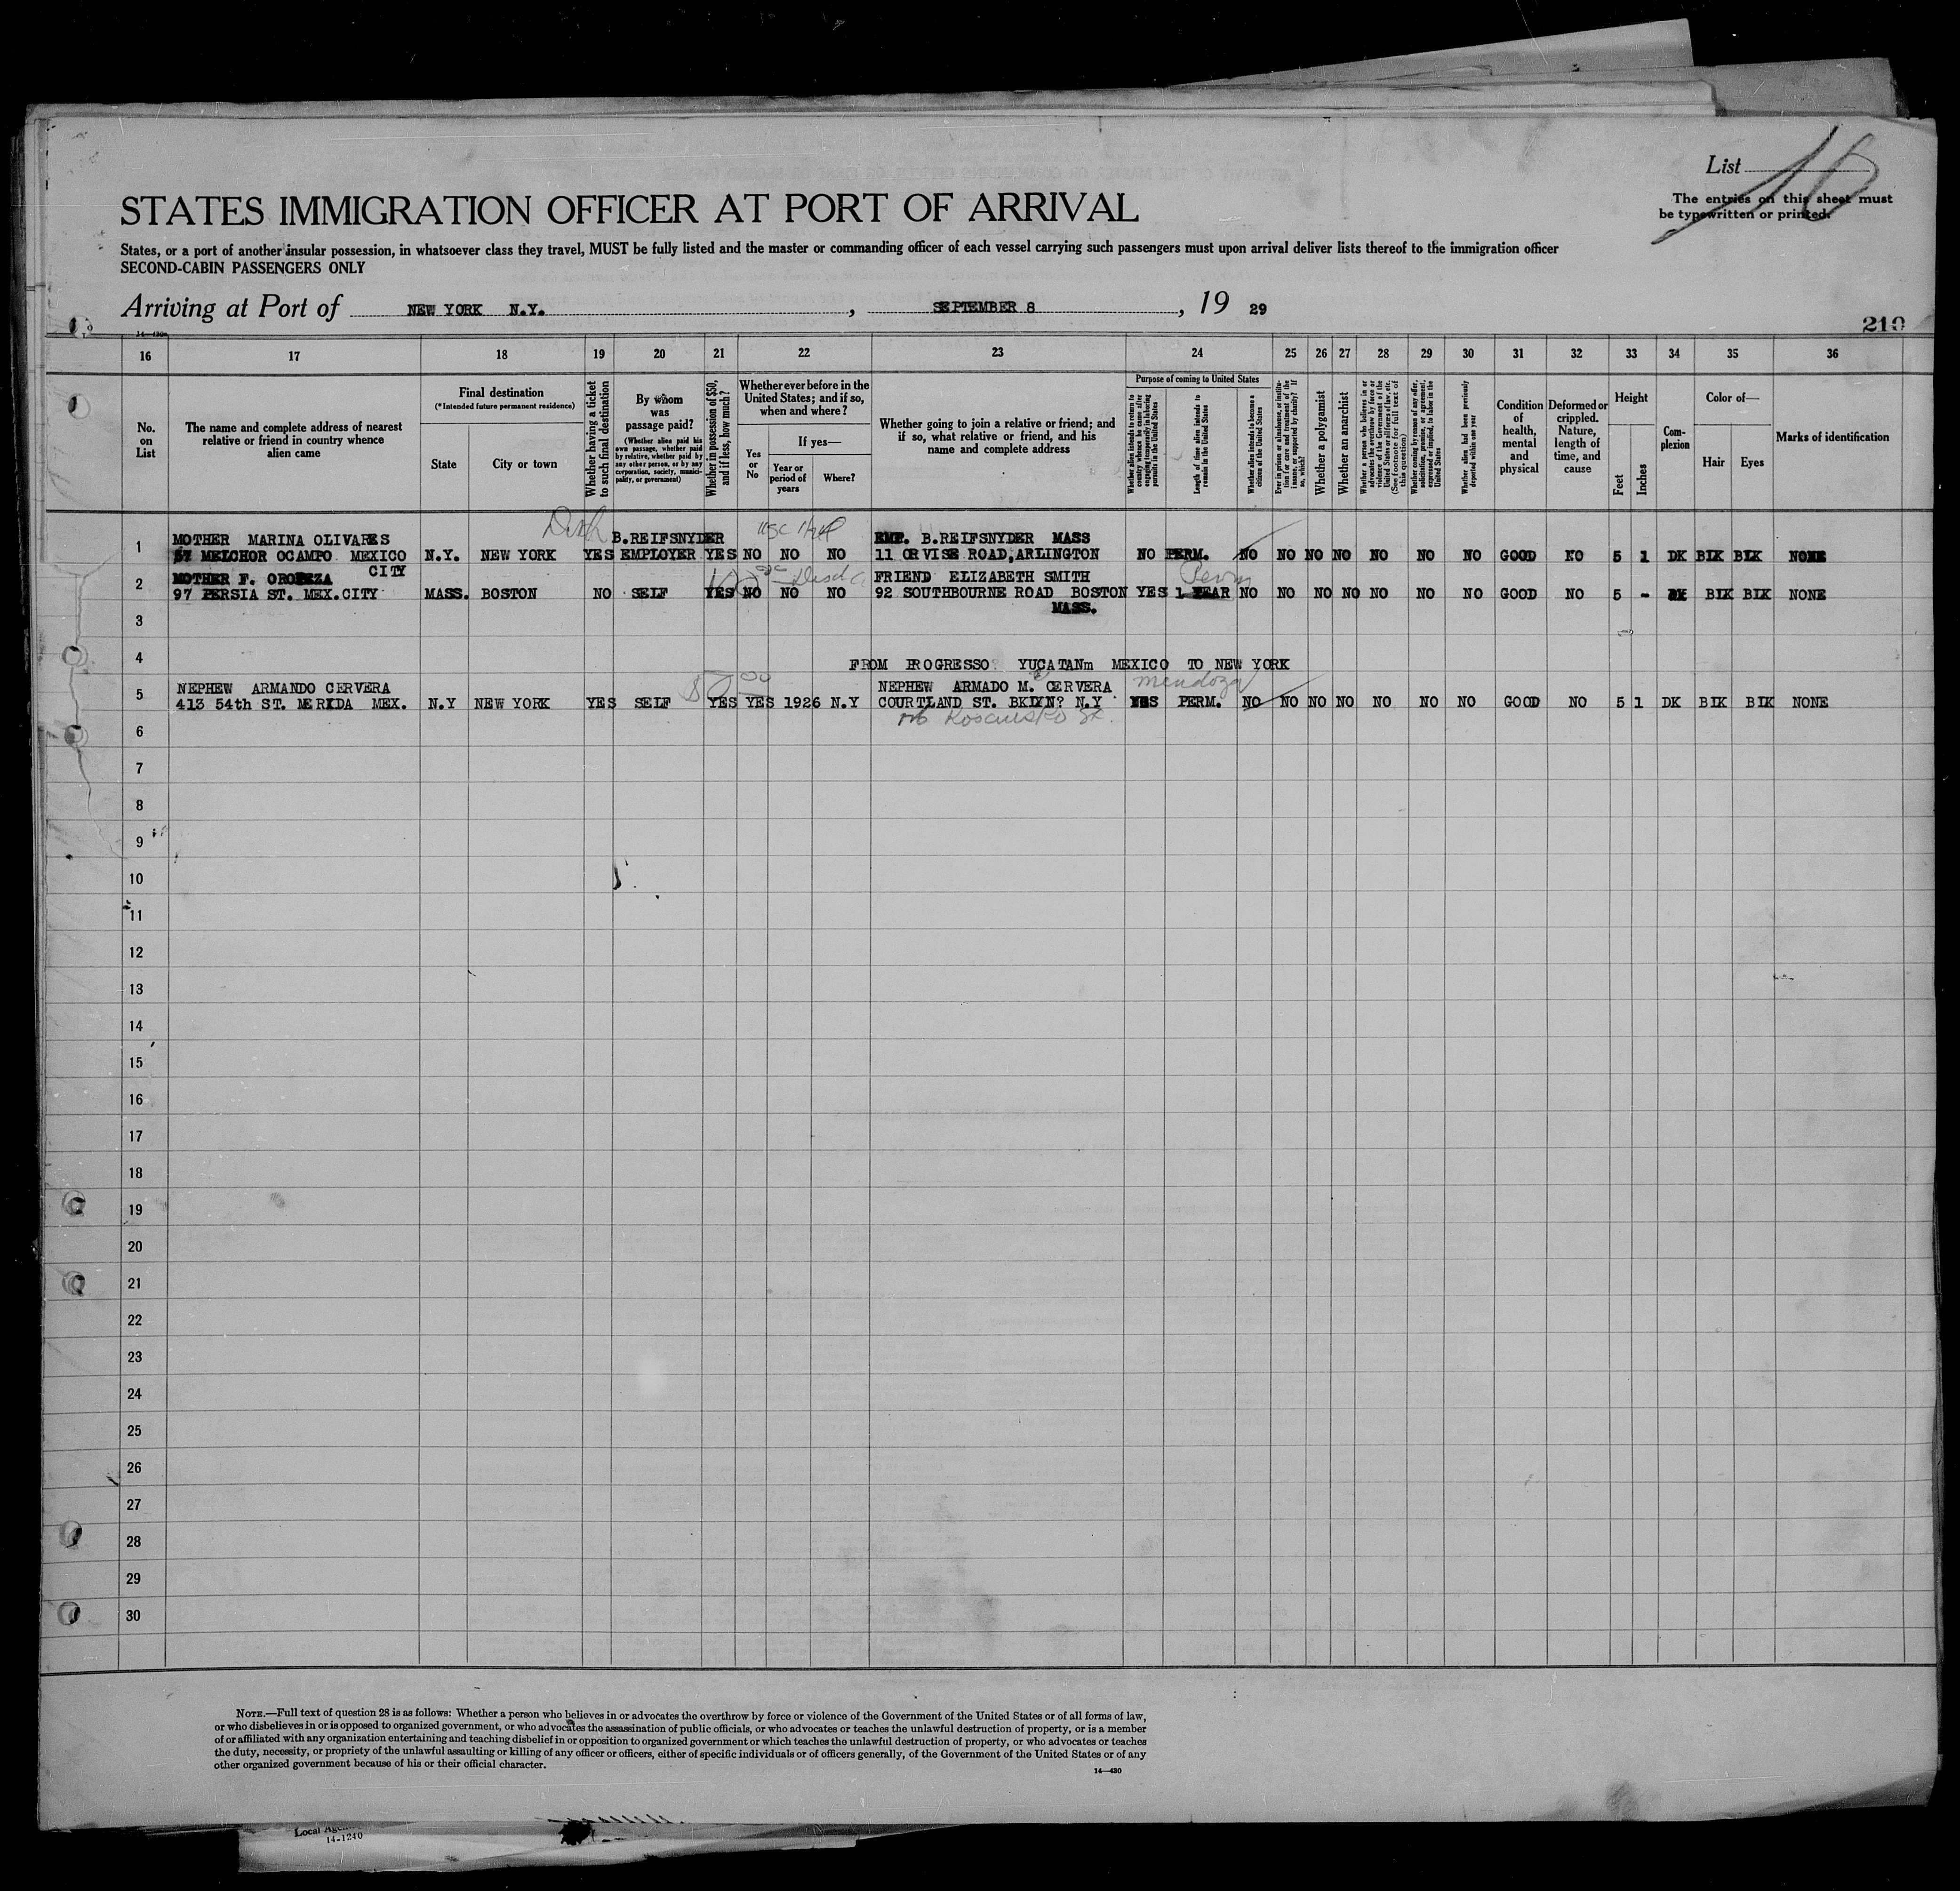 List
10
The entries on this sheet must
be typewritten or printed.
STATES IMMIGRATION OFFICER AT PORT OF ARRIVAL
States, or a port of another insular possession, in whatsoever class they travel, MUST be fully listed and the master or commanding officer of each vessel carrying such passengers must upon arrival deliver lists thereof to the immigration officer
SECOND-CABIN PASSENGERS ONLY
Arriving at Port of NEW YORK N.Y. , SEPTEMBER 8 , 19 29
210
16 17 18 19 20 21 22 23 24 25 26 27 28 29 30 31 32 33 34 35 36
No. on List
The name and complete address of nearest relative or friend in country whence alien came
Final destination
(*Intended future permanent residence)
State
City or town
Whether having a ticket to such final destination
By whom was passage paid?
(Whether alien paid his own passage, whether paid by relative, whether paid by any other person, or by any corporation, society, municipality, or government)
Whether in possession of $50, and if less, how much?
Whether ever before in the United States; and if so, when and where?
Yes or No
If yes—
Year or period of years
Where?
Whether going to join a relative or friend; and if so, what relative or friend, and his name and complete address
Purpose of coming to United States
Whether alien intends to return to country whence he came after engaging temporarily in laboring pursuits in the United States
Length of time alien intends to remain in the United States
Whether alien intends to become a citizen of the United States
Ever in prison or almshouse, or institution for care and treatment of the insane, or supported by charity? If so, which?
Whether a polygamist
Whether an anarchist
Whether a person who believes in or advocates the overthrow by force or violence of the Government of the United States or all forms of law, etc. (See footnote for full text of this question)
Whether coming by reason of any offer, solicitation, promise, or agreement, expressed or implied, to labor in the United States
Whether alien had been previously deported within one year
Condition of health, mental and physical
Deformed or crippled. Nature, length of time, and cause
Height
Feet
Inches
Complexion
Color of—
Hair
Eyes
Marks of identification
1 MOTHER MARINA OLIVARES B.REIFSNYDER EMP. B.REIFSNYDER MASS
57 MELCHOR OCAMPO MEXICO N.Y. NEW YORK YES EMPLOYER YES NO NO NO 11 ORVISE ROAD,ARLINGTON NO PERM. NO NO NO NO NO NO NO GOOD NO 5 1 DK BLK BLK NONE
CITY
2 MOTHER F. OROPEZA FRIEND ELIZABETH SMITH Perm
97 PERSIA ST. MEX.CITY MASS. BOSTON NO SELF YES NO NO NO 92 SOUTHBOURNE ROAD BOSTON YES 1 YEAR NO NO NO NO NO NO NO GOOD NO 5 - DK BLK BLK NONE
MASS.
3
4
FROM PROGRESSO YUCATANm MEXICO TO NEW YORK
5 NEPHEW ARMANDO CERVERA $50.00 NEPHEW ARMADO M. CERVERA Mendoza
413 54th ST. MERIDA MEX. N.Y NEW YORK YES SELF YES YES 1926 N.Y COURTLAND ST. BKLYN? N.Y YES PERM. NO NO NO NO NO NO NO GOOD NO 5 1 DK BLK BLK NONE
6
7
8
9
10
11
12
13
14
15
16
17
18
19
20
21
22
23
24
25
26
27
28
29
30
NOTE.—Full text of question 28 is as follows: Whether a person who believes in or advocates the overthrow by force or violence of the Government of the United States or of all forms of law,
or who disbelieves in or is opposed to organized government, or who advocates the assassination of public officials, or who advocates or teaches the unlawful destruction of property, or is a member
of or affiliated with any organization entertaining and teaching disbelief in or opposition to organized government or which teaches the unlawful destruction of property, or who advocates or teaches
the duty, necessity, or propriety of the unlawful assaulting or killing of any officer or officers, either of specific individuals or of officers generally, of the Government of the United States or of any
other organized government because of his or their official character.
14—430
Local
14-1240